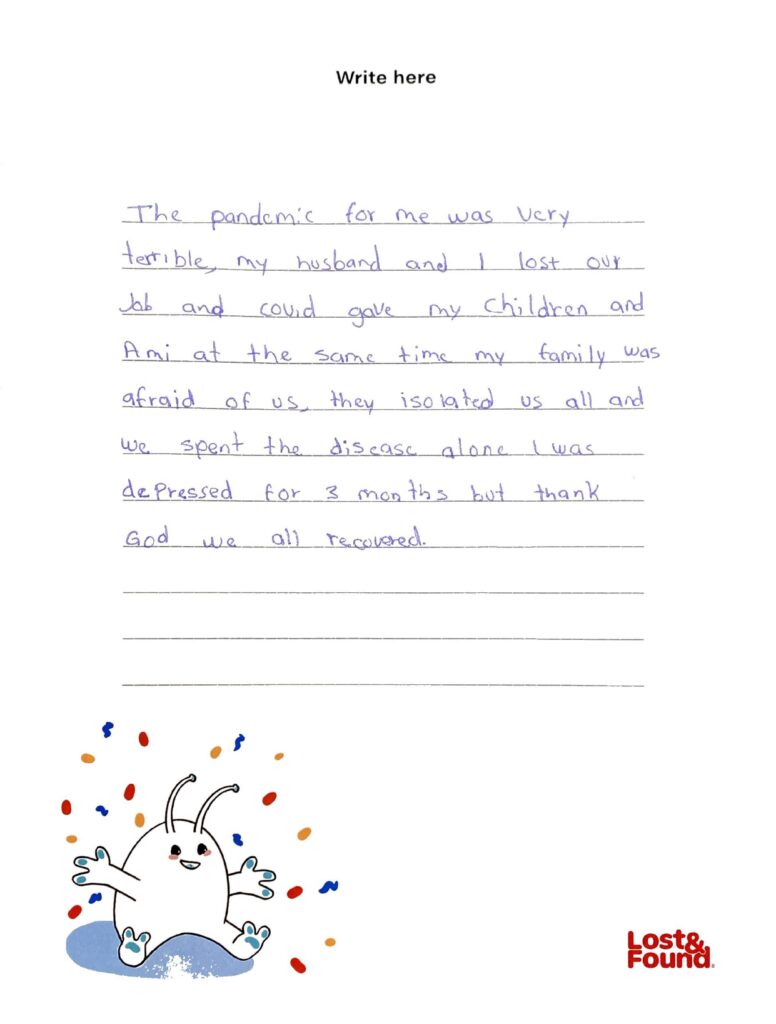 Write here
The pandemic for me was very
terrible, my husband and I lost our
Job and covid gave my children and
Ami at the same time my family was
afraid of us, they isolated us all and
we spent the disease alone I was
depressed for 3 months but thank
God we all recovered.
Lost&
Found.